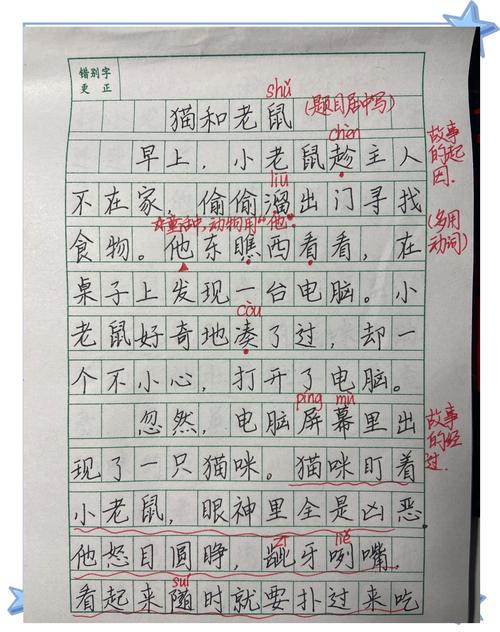 错别字
更 正
shǔ
猫和老鼠 (题目居中写)
chèn
早上，小老鼠趁主人
故事的起因.
liū
不在家，偷偷溜出门寻找
童话中，动物用"他".
食物。他东瞧西看看，在
(多用动词)
桌子上发现一台电脑。小
còu
老鼠好奇地凑了过，却一
个不小心，打开了电脑。
píng mù
忽然，电脑屏幕里出
故事的经过.
现了一只猫咪。猫咪盯着
小老鼠，眼神里全是凶恶
zī liě
他怒目圆睁，龇牙咧嘴.
suí
看起来随时就要扑过来吃